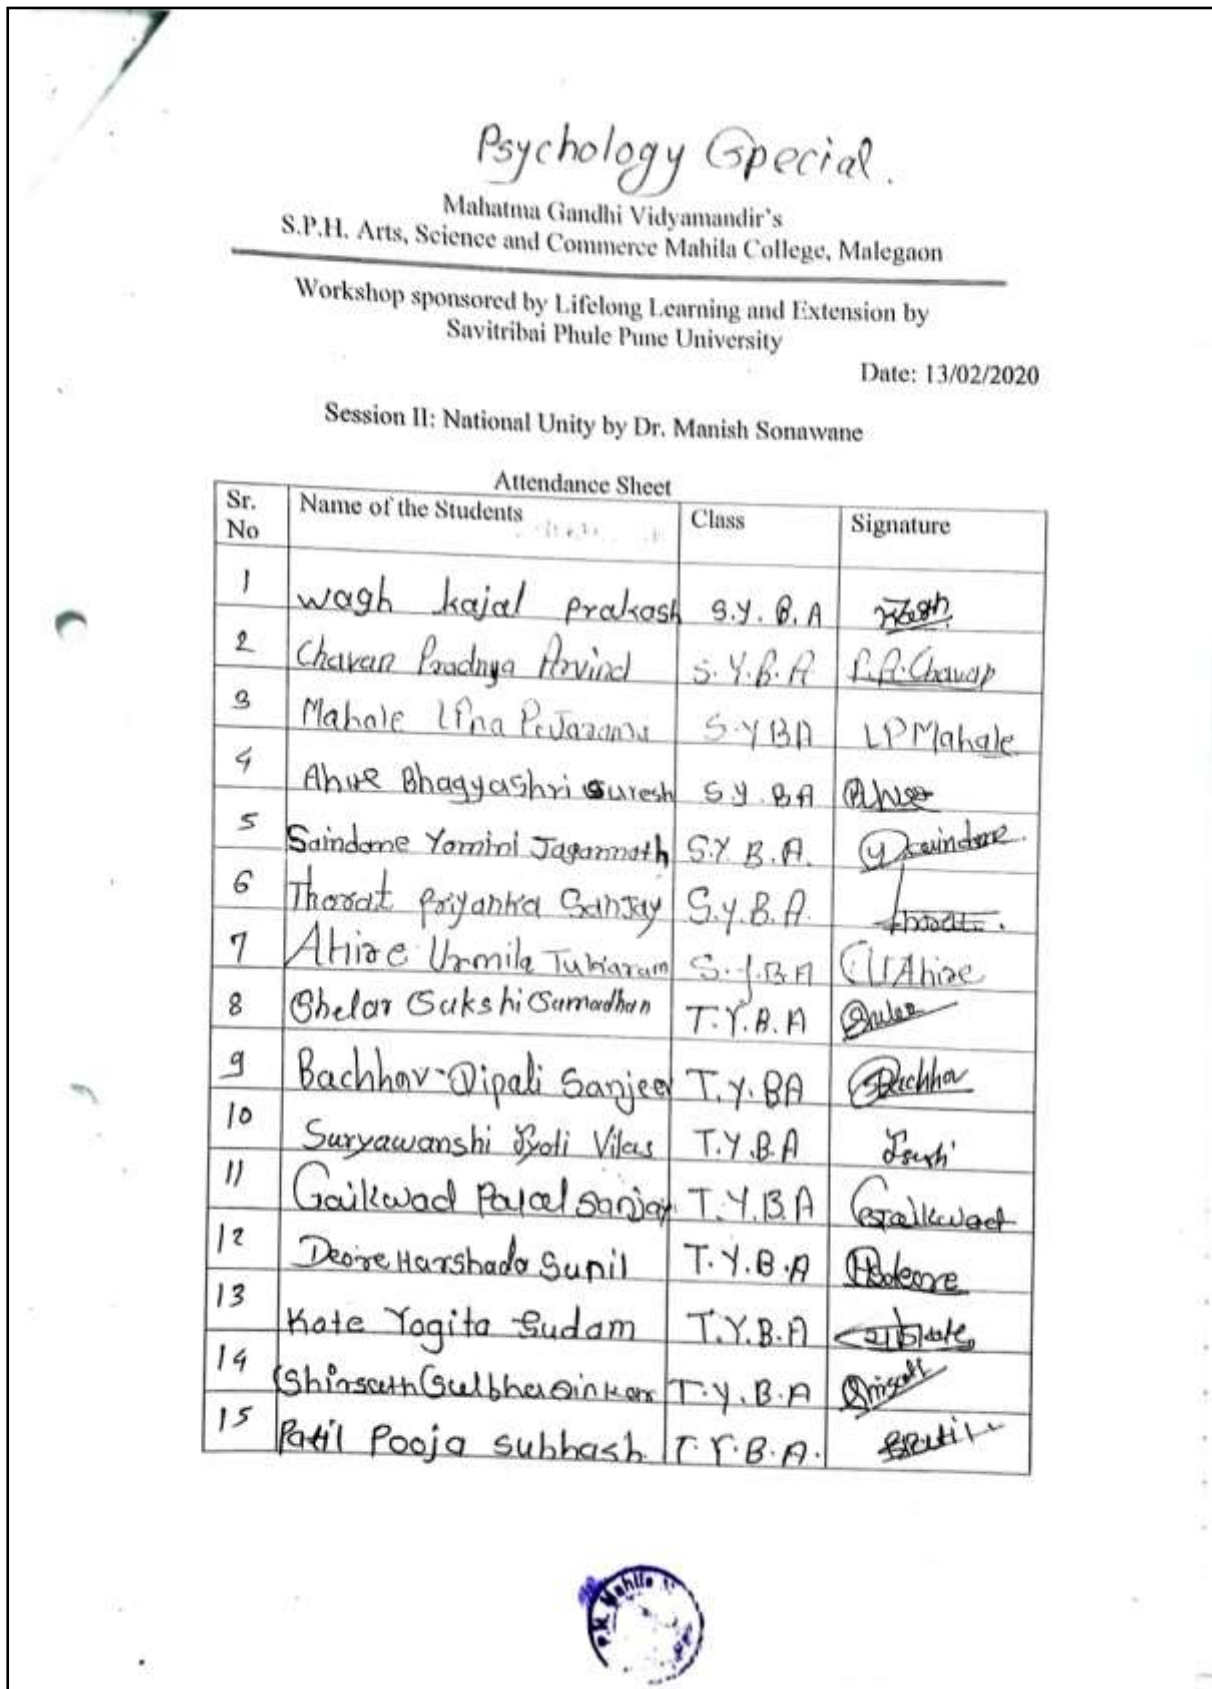 Psychology Special.
Mahatma Gandhi Vidyamandir's
S.P.H. Arts, Science and Commerce Mahila College, Malegaon
Workshop sponsored by Lifelong Learning and Extension by
Savitribai Phule Pune University
Date: 13/02/2020
Session II: National Unity by Dr. Manish Sonawane
Attendance Sheet
Sr. No Name of the Students Class Signature
1 Wagh Kajal Prakash S.Y.B.A
2 Chavan Pradnya Arvind S.Y.B.A P.A.Chavan
3 Mahale Lina S.YBA LPMahale
4 Ahire Bhagyashri Suresh S.Y.BA
5 Saindane Yamini Jagannath S.Y.B.A.
6 Thorat Priyanka Sanjay S.Y.B.A. Thorat.
7 Ahire Urmila Tukaram S.Y.B.A UAhire
8 Shelar Sakshi Samadhan T.Y.B.A
9 Bachhav Dipali Sanjeev T.Y.BA Bachhav
10 Suryawanshi Jyoti Vilas T.Y.B.A
11 Gaikwad Payal Sanjay T.Y.B.A Gaikwad
12 Deore Harshada Sunil T.Y.B.A HSdeore
13 Kate Yogita Sudam T.Y.B.A
14 Shirsath Sulbha Dinkar T.Y.B.A
15 Patil Pooja Subhash T.Y.B.A. Patil
Mahila